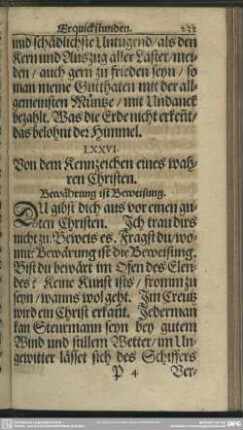 Erquickstunden.
und schädlichste Untugend / als den
Kern und Auszug aller Laster / mei-
den / auch gern zu frieden seyn / so
man meine Gutthaten mit der all-
gemeinsten Müntze / mit Undanck
bezahlt. Was die Erde nicht erkent /
das belohnt der Himmel.
LXXVI.
Von dem Kennzeichen eines wah-
ren Christen.
Bewährung ist Beweisung.
DU gibst dich aus vor einen gu-
ten Christen. Ich trau dirs
nicht zu. Beweis es. Fragst du / wo-
mit: Bewärung ist die Beweisung.
Bist du bewärt im Ofen des Elen-
des? Keine Kunst ists / fromm zu
seyn / wanns wol geht. Im Creutz
wird ein Christ erkañt. Jederman
kan Steurmann seyn bey gutem
Wind und stillem Wetter / im Un-
gewitter lässet sich des Schiffers
P 4
Ver-